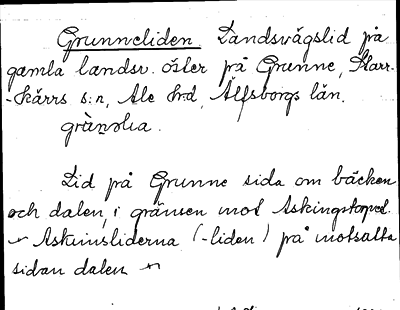 Grunneliden. Landsvägslid på
gamla landsv. öster på Grunne, Starr-
-kärrs s:n, Ale hrd, Älfsborgs län.
Lid på Grunne sida om bäcken
och dalen, i gränsen mot Askingstorpel.
Askimsliderna (-liden) på motsatta
sidan dalen